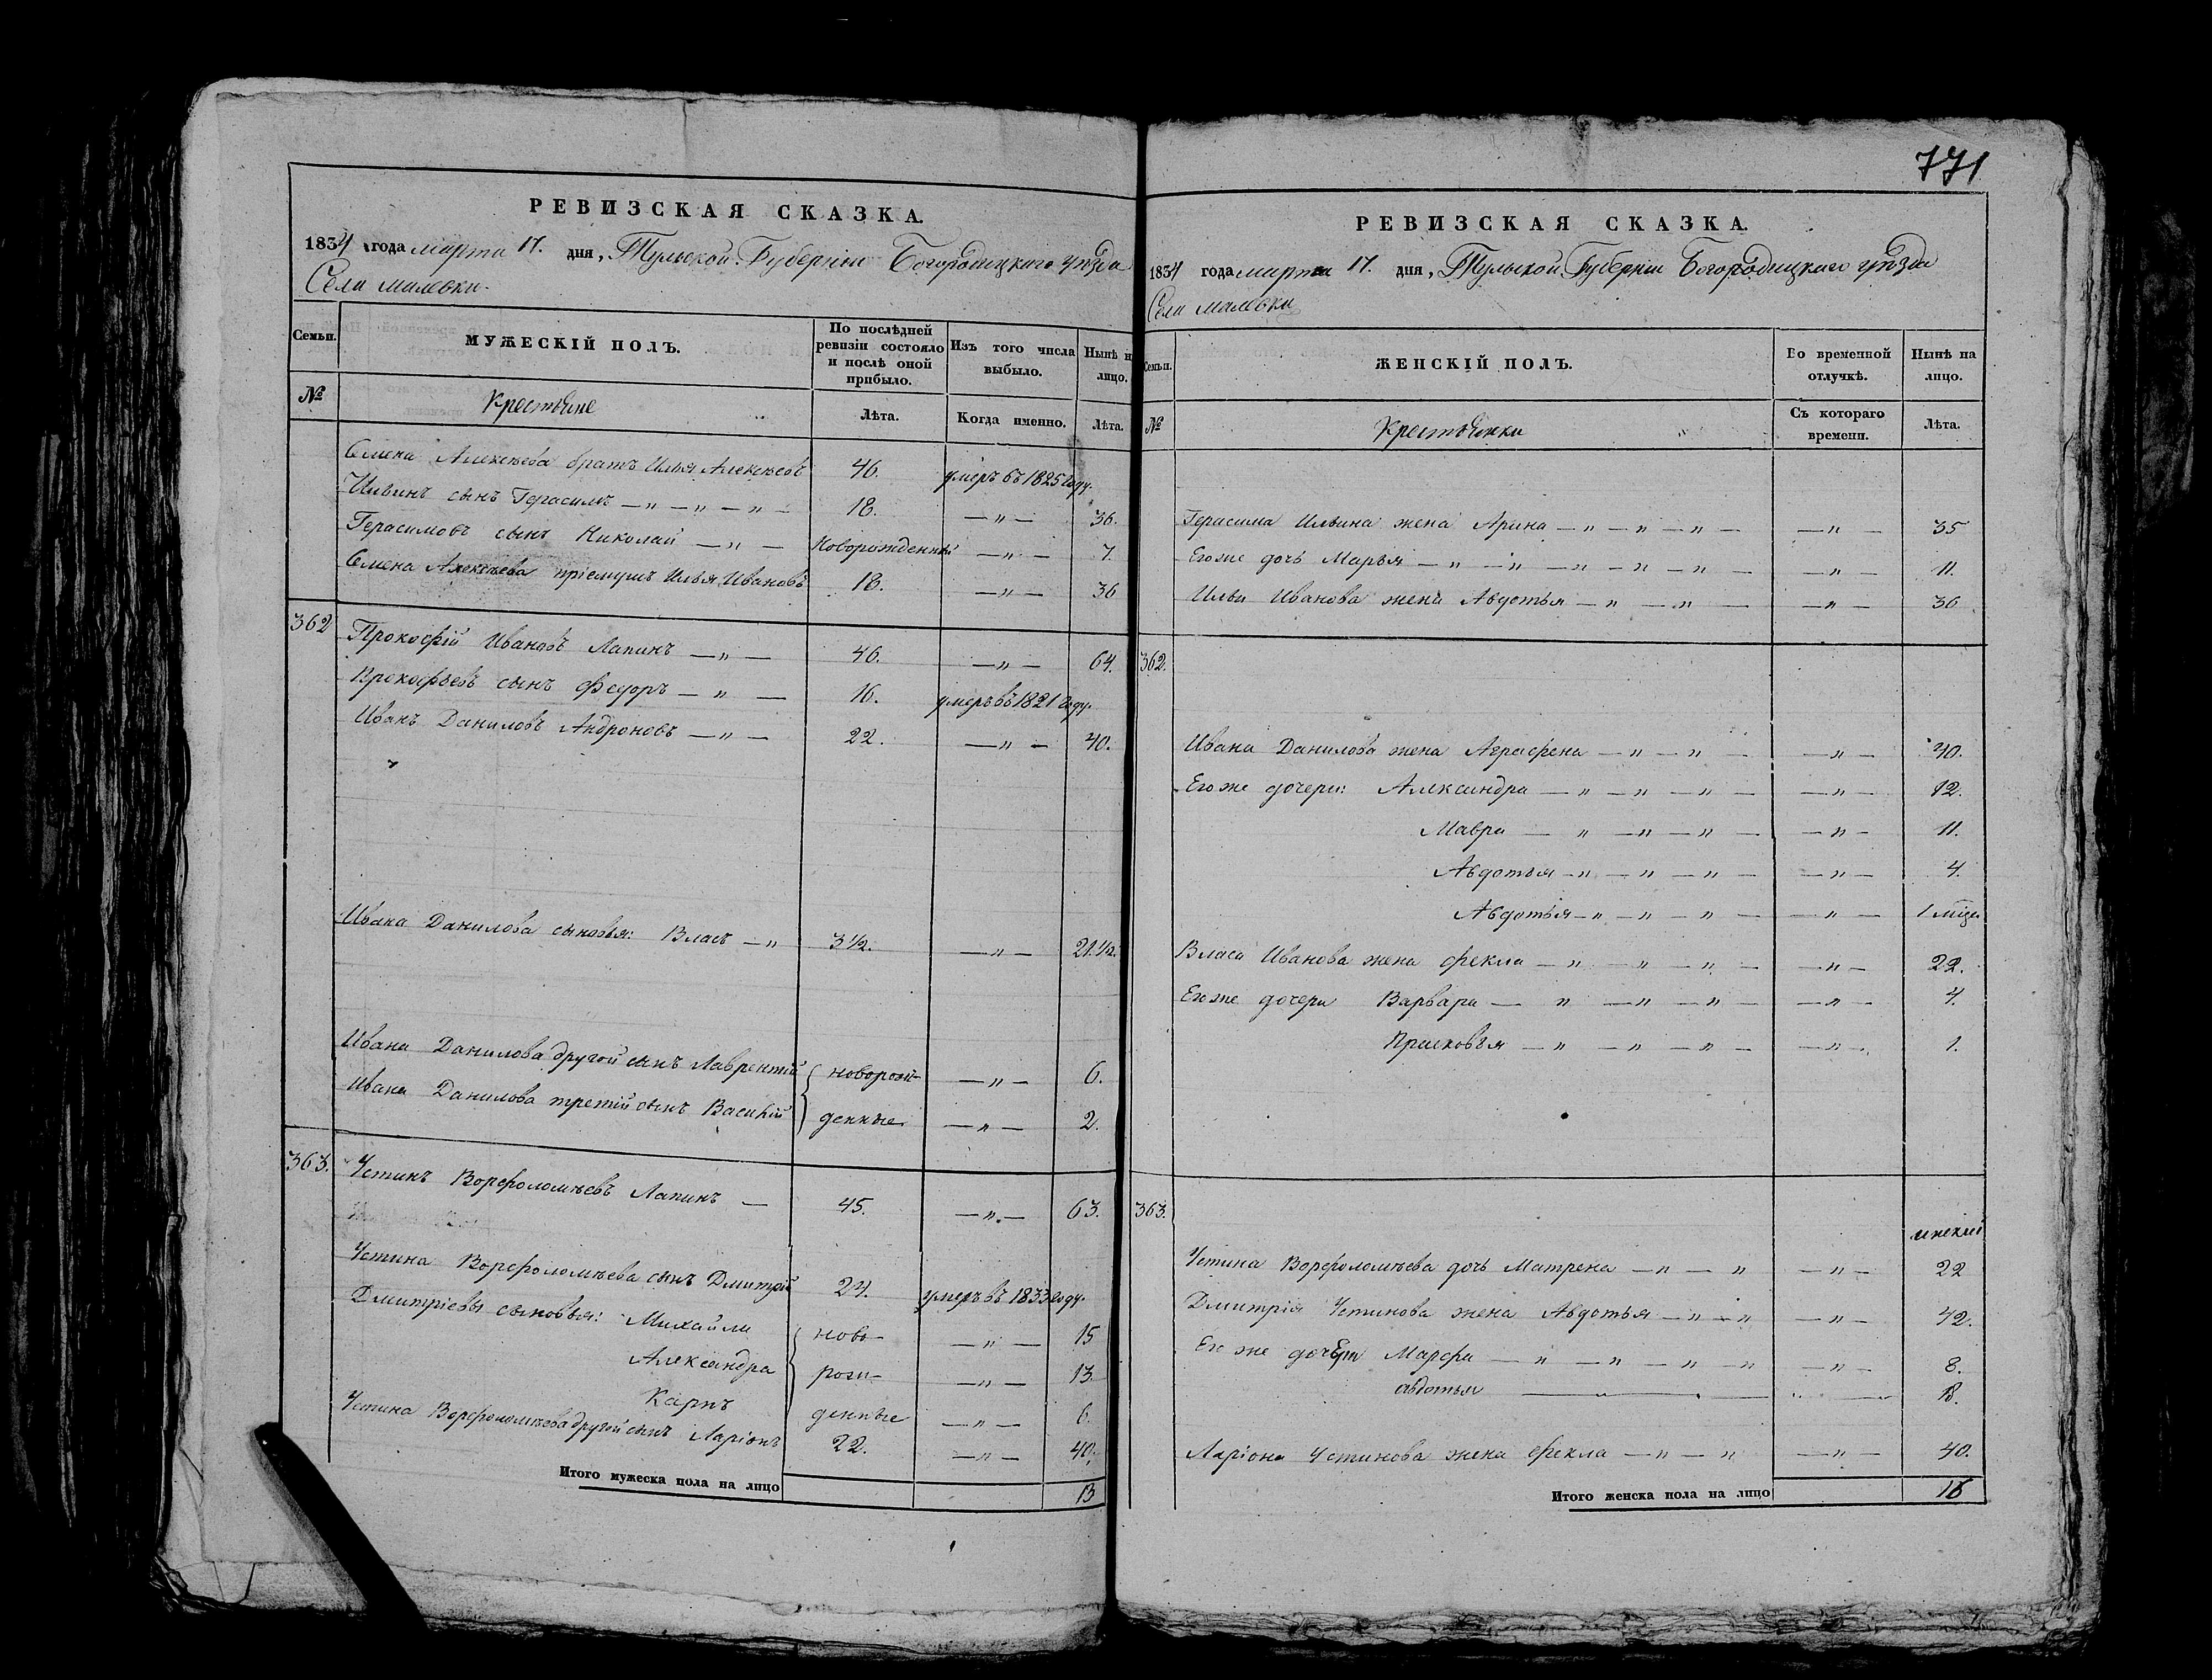 РЕВИЗСКАЯ СКАЗКА.
1834 года марта 17. дня, Тульской Губерніи Богородицкаго уѣзда
Села малевки.
Семьи.
МУЖЕСКІЙ ПОЛЪ.
По послѣдней ревизіи состояло и послѣ оной прибыло.
Изъ того числа выбыло.
Нынѣ на лицо.
№
Крестьяне
Лѣта.
Когда именно.
Лѣта.
Семена Алексѣева братъ Илья Алексѣевъ 46. умеръ въ 1825 году.
Ильинъ сынъ Герасимъ — „ — „ — „ — 18. — „ — 36.
Герасимовъ сынъ Николай — „ — Новорожденный — „ — 7.
Семена Алексѣева пріемышъ Илья Ивановъ 18. — „ — 36
362 Прокофій Ивановъ Лапинъ — „ — 46. — „ — 64.
Прокофьевъ сынъ Федоръ — „ — 16. умеръ въ 1821 году.
Иванъ Даниловъ Андроновъ — „ — 22. — „ — 40.
Ивана Данилова сыновья: Власъ — „ 3 1/2. — „ — 21. 1/2.
Ивана Данилова другой сынъ Лаврентій новорож- — „ — 6.
Ивана Данилова третій сынъ Василій денные — „ — 2.
363. Устинъ Ворфоломѣевъ Лапинъ — 45. — „ — 63.
Устина Ворфоломѣева сынъ Дмитрій 24. умеръ въ 1833 году.
Дмитріевы сыновья: Михайла ново- — „ — 15
Александра рож- — „ — 13.
Карпъ денные — „ — 6.
Устина Ворфоломѣева другой сынъ Ларіонъ 22. — „ — 40.
Итого мужеска пола на лицо 13
771
РЕВИЗСКАЯ СКАЗКА.
1834 года марта 17. дня, Тульской Губерніи Богородицкаго уѣзда
Села малевки
Семьи.
ЖЕНСКІЙ ПОЛЪ.
Во временной отлучкѣ.
Нынѣ на лицо.
№
Крестьянки
Съ котораго времени.
Лѣта.
Герасима Ильина жена Арина — „ — „ — „ — — „ — 35
Его же дочь Марья — „ — „ — „ — „ — „ — — „ — 11.
Ильи Иванова жена Авдотья — „ — „ — — „ — 36
362.
Ивана Данилова жена Аграфена — „ — „ — — „ — 40.
Его же дочери: Александра — „ — „ — „ — — „ — 12.
Мавра — „ — „ — „ — — „ — 11.
Авдотья — „ — „ — „ — — „ — 4.
Авдотья — „ — „ — „ — — „ — 1 мѣсяц
Власа Иванова жена Фекла — „ — „ — „ — — „ — 22.
Его же дочери Варвара — „ — „ — „ — — „ — 4.
Прасковья — „ — „ — „ — — „ — 1.
363.
Устина Ворфоломѣева дочь Матрена — „ — „ — „ — 22
Дмитрія Устинова жена Авдотья — „ — „ — „ — 42.
Его же дочери Марфа — „ — „ — „ — „ — „ — 8.
авдотья — „ — 18.
Ларіона Устинова жена Фекла — „ — „ — „ — 40.
Итого женска пола на лицо 16